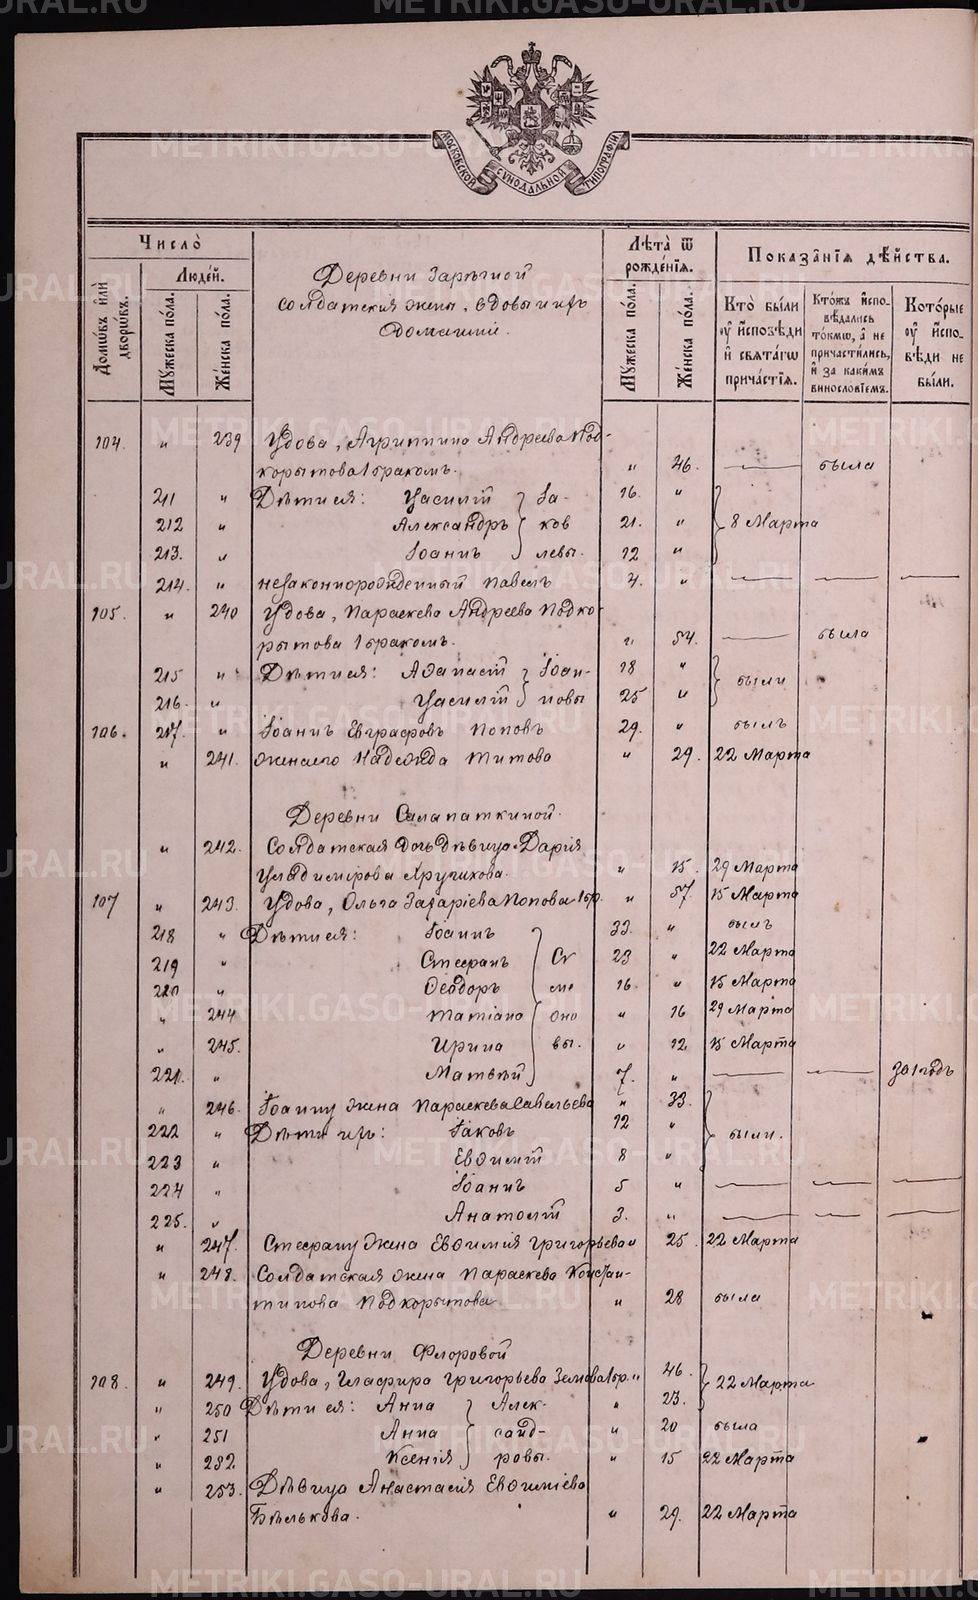 METRIKI.GASO-URAL.RU
МОСКОВСКОЙ СѴНОДАЛЬНОЙ ТИПОГРАФІИ
Число̀
Домѡ́въ и҆лѝ дворѡ́въ.
Люде́й.
Мꙋ́жеска по́ла.
Же́нска по́ла.
Деревни Зарѣчной
солдатскія жены, вдовы и ихъ
домашніи.
Лѣ́та ѿ рожде́нїѧ.
Мꙋ́жеска по́ла.
Же́нска по́ла.
Показа̑нїѧ дѣ́йства.
Кто̀ бы́ли оу҆ и҆сповѣ́ди и҆ свѧта́гѡ прича́стїѧ.
Кто́жъ и҆спо-вѣ́дались то́кмѡ, а҆ не причасти́лись, и҆ за каки́мъ винослові́емъ.
Кото́рые оу҆ и҆спо-вѣ́ди не бы́ли.
104. " 239 Вдова, Агриппина Андреева Под-
корытова 1 бракомъ. " 46. — была
211 " Дѣти ея: Василій } Іа- 16. "
212 " Александръ } ков 21. " } 8 Марта
213. " Іоаннъ } левы. 12 "
214. " незаконнорожденный Павелъ 4. " — — —
105. " 240 Вдова, Параскева Андреева Подко-
рытова 1 бракомъ. " 54. — была
215 " Дѣти ея: Аѳанасій } Іоан- 18 "
216. " Василій } новы 25 " } были
106. 217. " Іоаннъ Евграфовъ Поповъ 29. " былъ
" 241. жена его Надежда Титова " 29. 22 Марта
Деревни Салапаткиной.
" 242. Солдатская дочь дѣвица Дарія
Владимірова Кручинова. " 15. 29 Марта
107 " 243. Вдова, Ольга Захаріева Попова 1 бр. " 57. 15 Марта
218 " Дѣти ея: Іоаннъ 33. " былъ
219 " Стефанъ } Си 23 " 22 Марта
220 " Ѳеодоръ } ме 16. " 15 Марта
" 244 Матіана } оно " 16 29 Марта
" 245. Ирина } вы. " 12. 15 Марта
221. " Матвѣй 7. " — — за 1 годъ
" 246. Іоанну жена Параскева Савельева " 33.
222 " Дѣти ихъ: Іаковъ 12 " } были.
223 " Евѳимій 8 "
224 " Іоаннъ 5 " — — —
225. " Анатолій 3. " — — —
" 247. Стефану жена Евѳимія Григорьева " 25. 22 Марта
" 248. Солдатская жена Параскева Констан-
тинова Подкорытова " 28 была
Деревни Флоровой
108. " 249. Вдова, Глафира Григорьева Земова 1 бр. " 46. } 22 Марта
" 250 Дѣти ея: Анна } Алек- " 23.
" 251 Анна } санд- " 20 была
" 252 Ксенія } ровы. " 15 22 Марта
" 253. Дѣвица Анастасія Евѳиміева
Бѣлькова. " 29. 22 Марта